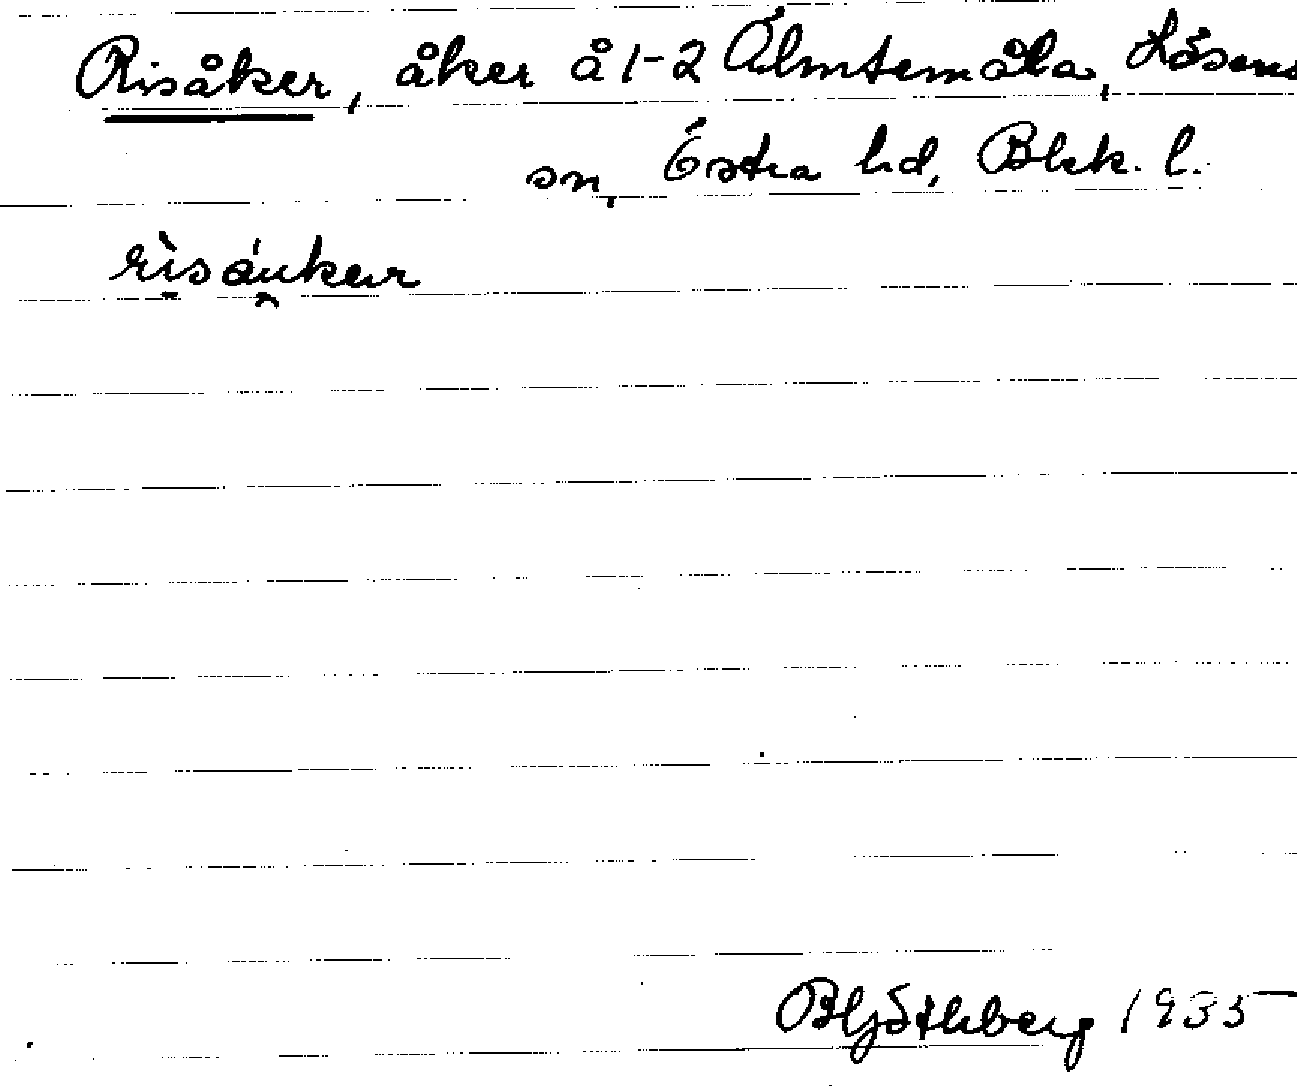 Risåker, åker å 1-2 Älmtemåla, Lösens
sn, Östra hd, Blek. l.
rìsá̯uker
1935